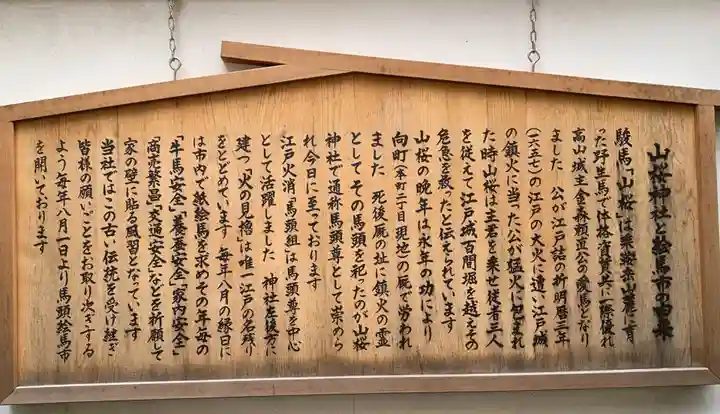 山桜神社と絵馬市の由来
駿馬「山桜」は乗鞍岳山麓に育
った野生馬で体格資質共に一際優れ
高山城主金森頼直公の愛馬となり
ました 公が江戸詰の折明暦三年
(一六五七)の江戸の大火に遭い江戸城
の鎮火に当った公が猛火に包まれ
た時山桜は主君を乗せ従者三人
を従えて江戸城百間堀を越えその
危急を救ったと伝えられています
山桜の晩年は永年の功により
向町(本町二丁目現地)の厩で労われ
ました 死後厩の址に鎮火の霊
としてその馬頭を祀ったのが山桜
神社で通称馬頭尊として崇めら
れ今日に至っております
江戸火消「馬頭組」は馬頭尊を中心
として活躍しました 神社左後方に
建つ「火の見櫓」は唯一江戸の名残り
をとどめています 毎年八月の縁日に
は市内で紙絵馬を求めその年毎の
「牛馬安全」「養蚕安全」「家内安全」
「商売繁昌」「交通安全」などを祈願して
家の壁に貼る風習となっています
当社ではこの古い伝統を受け継ぎ
皆様の願いごとをお取り次ぎする
よう毎年八月一日より馬頭絵馬市
を開いております